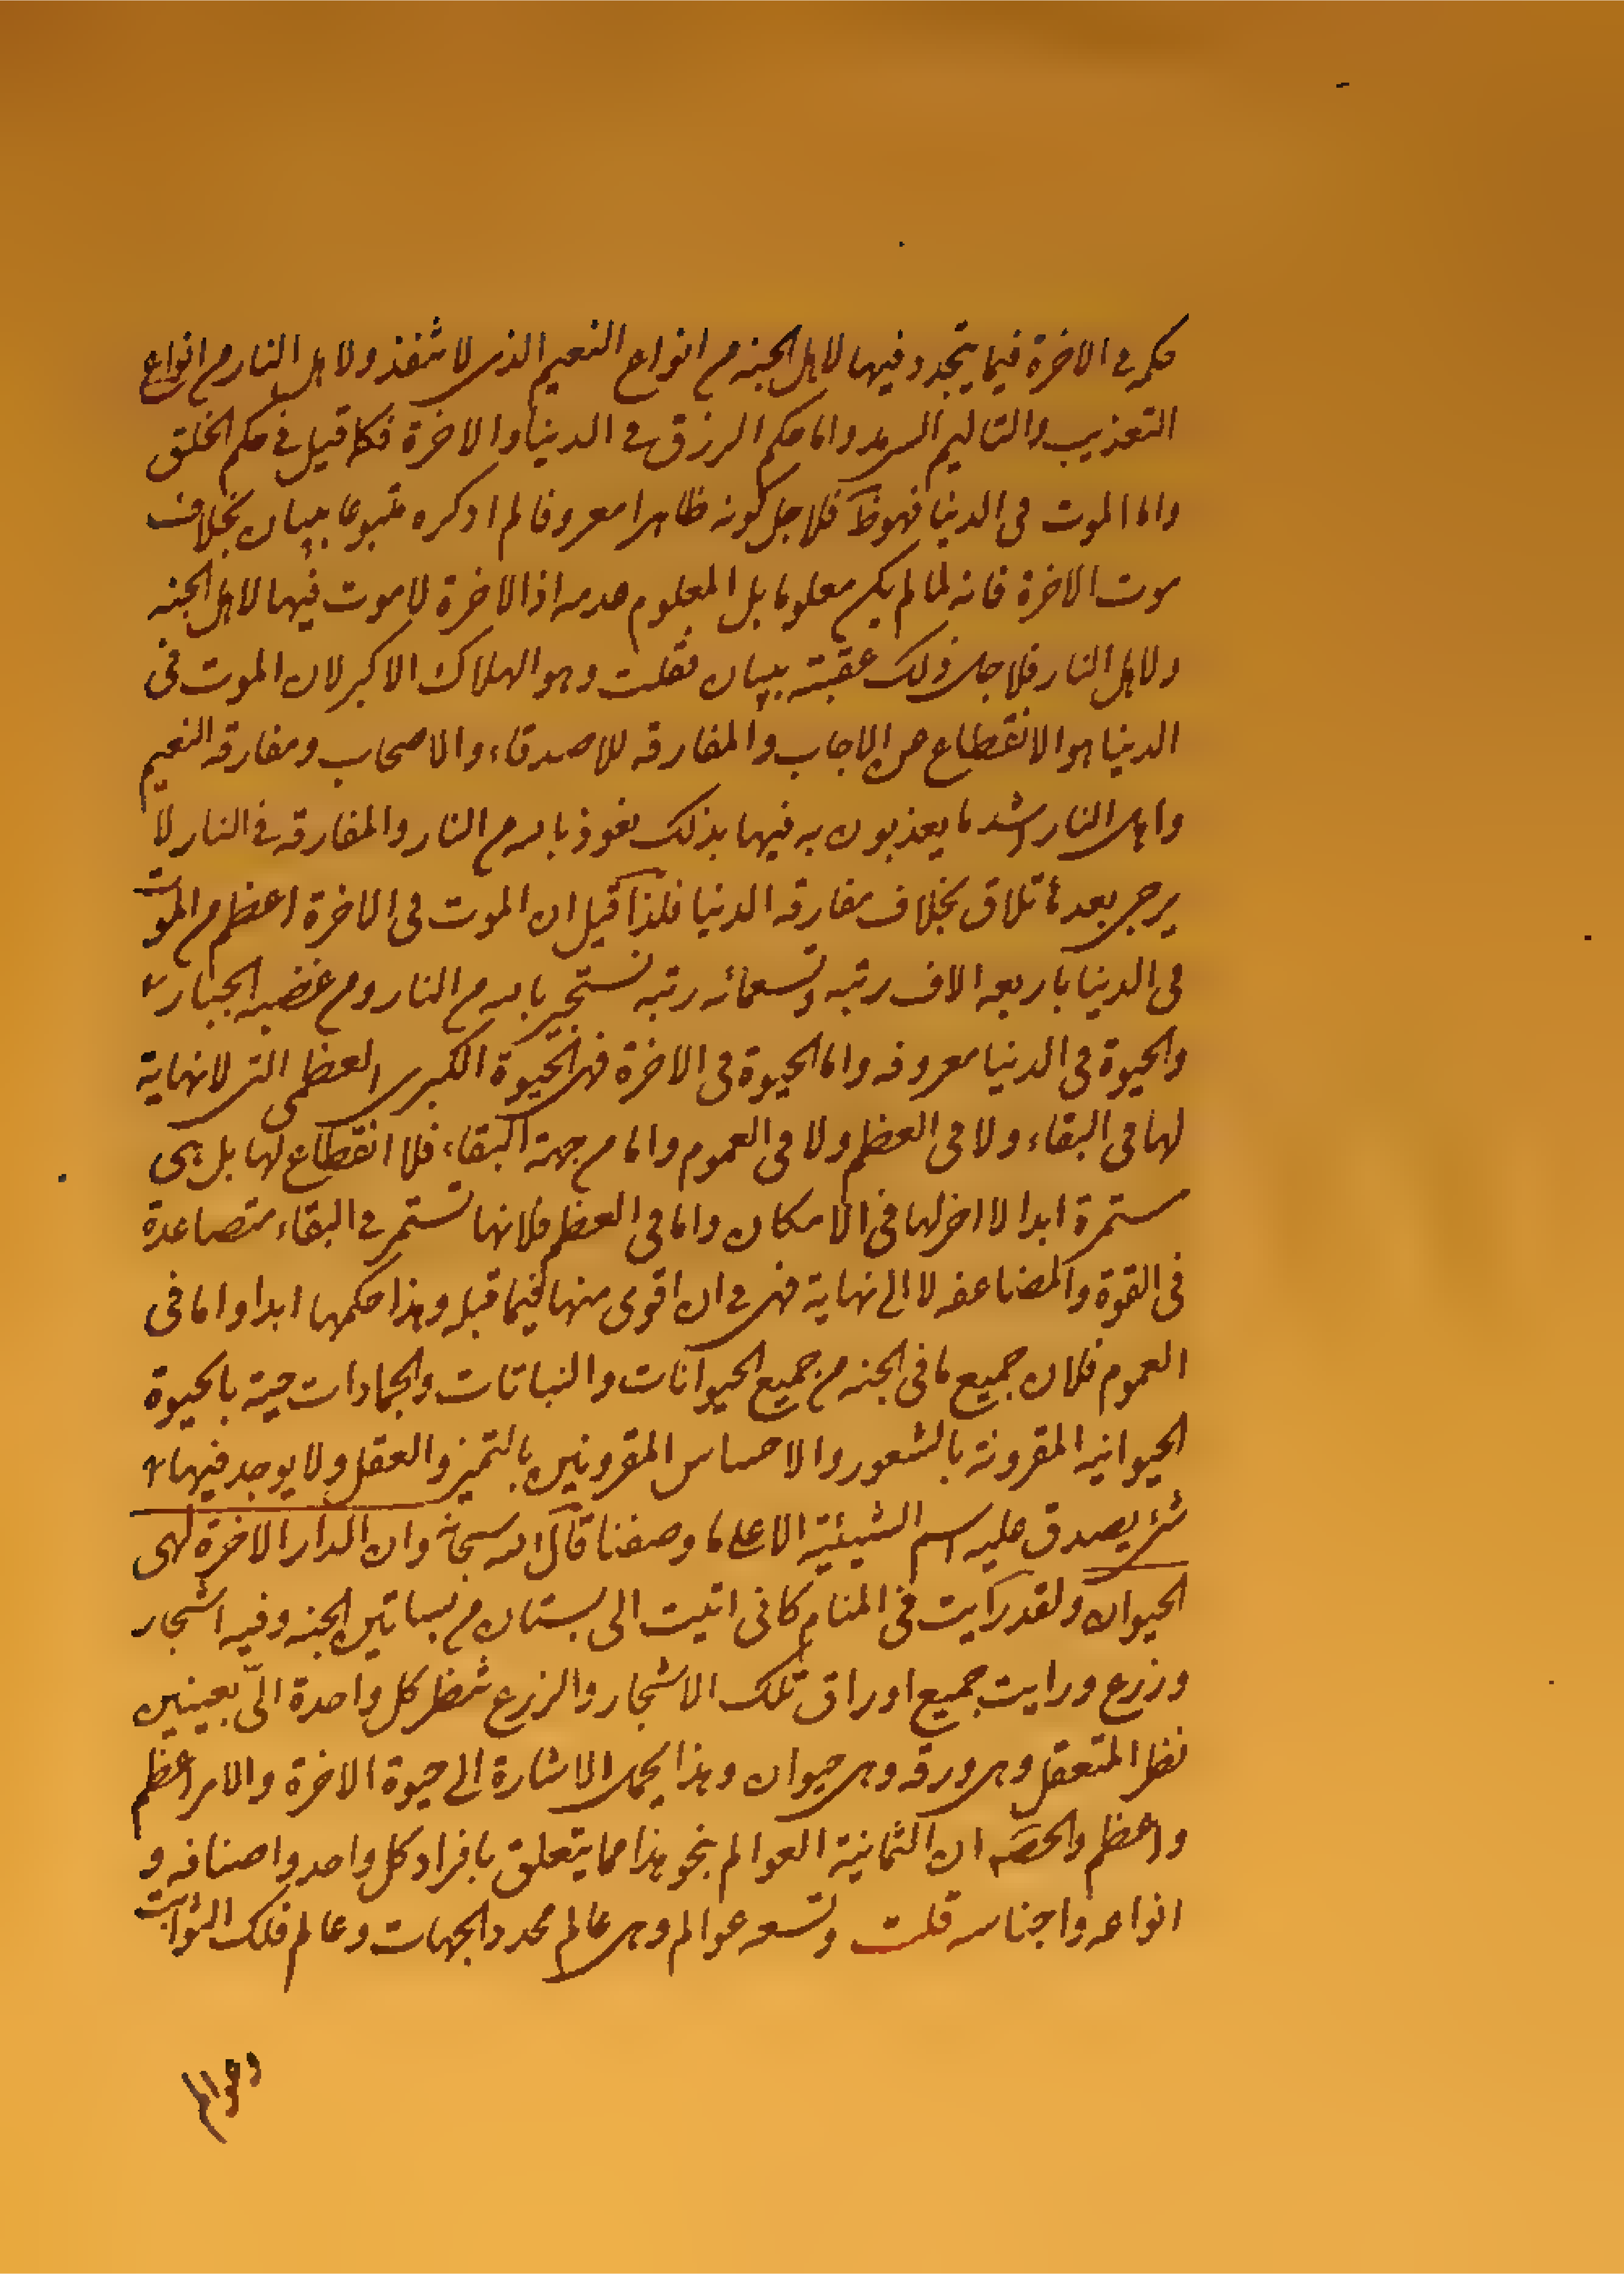 حكمه في الاخرة فيما يتجدد فيها لاهل الجنه من انواع النعيم الذى لا ينفذ ولاهل النار من انواع
التعذيب والتاليم السرمد واما حكم الرزق في الدنيا والاخرة فكما قيل في حكم الخلق
واما الموت فى الدنيا فهو فلاجل كونه ظاهرا معروفا لم اذكره متبوعا ببيان بخلاف
موت الاخرة فانه لما لم يكن معلوما بل المعلوم عدمه اذ الاخرة لا موت فيها لاهل الجنه
ولاهل النار فلاجل ذلك عقبته ببيان فقلت وهو الهلاك الاكبر لان الموت فى
الدنيا هو الانقطاع عن الاحباب والمفارقه للاصدقاء والاصحاب ومفارقه النعيم
واهل النار اشد ما يعذبون به فيها بذلك نعوذ بالله من النار والمفارقه في النار لا
يرجى بعدها تلاق بخلاف مفارقه الدنيا فلذا قيل ان الموت فى الاخرة اعظم من الموت
فى الدنيا باربعه الاف رتبه وتسعمائه رتبه نستجير بالله من النار ومن غضب الجبار
والحيوة فى الدنيا معروفه واما الحيوة فى الاخرة فهى الحيوة الكبرى العظمى التى لا نهاية
لها فى البقاء ولا فى العظم ولا فى العموم واما من جهة البقاء فلا انقطاع لها بل هى
مستمرة ابدا لا اخر لها فى الامكان واما فى العظم فلانها تستمر في البقاء متصاعدة
فى القوة والمضاعفه لا الى نهاية فهى في ان اقوى منها فيما قبله وهذا حكمها ابدا واما فى
العموم فلان جميع ما فى الجنه من جميع الحيوانات والنباتات والجمادات حية بالحيوة
الحيوانيه المقرونة بالشعور والاحساس المقرونين بالتميز والعقل ولا يوجد فيها
شئ يصدق عليه اسم الشيئية الا على ما وصفنا قال الله سبحانه وان الدار الاخرة لهى
الحيوان ولقد رايت فى المنام كانى اتيت الى بستان من بساتين الجنه وفيه اشجار
وزرع ورايت جميع اوراق تلك الاشجار والزرع تنظر كل واحدة الىّ بعينين
نظر المتعقل وهى ورقه وهى حيوان وهذا يحمل الاشارة الى حيوة الاخرة والامر اعظم
واعظم ان الثمانية العوالم بنحو هذا مما يتعلق بافراد كل واحد واصنافه و
انواعه واجناسه قلت وتسعه عوالم وهى عالم محدد الجهات وعالم فلك الثوابت
وعوالم